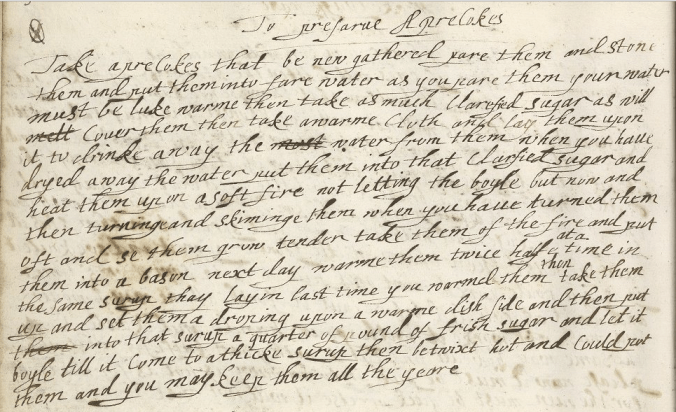 To presarve Aprecokes
Take aprecokes that be new gathered pare them and stone
them and put them into fare water as you pare them your water
must be luke warme then take as much Clarefed sugar as will
melt Cover them then take a warme Cloth and lay them upon
it to drinke away the most water from them when you have
dryed away the water put them into that Clarfied sugar and
heat them upon a soft fire not letting the boyle but now and
then turninge and skiminge them when you have turned them
oft and se them grow tender take them of the fire and put
them into a bason next day warme them twice half at a time in
the same surup thay lay in last time you warmd them then take them
up and set them a droping upon a warme dish side and then put
them into that surup a quarter of pound of frish sugar and let it
boyle till it Come to a thicke surup then betwixt hot and Could pot
them and you may keep them all the yeare